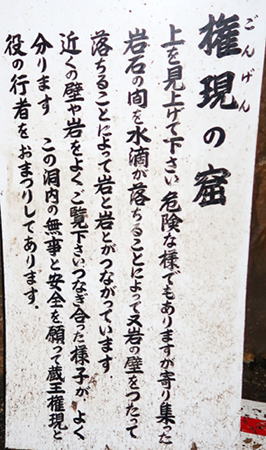 権現の窟
ごんげん
上を見上げて下さい 危険な様でもありますが寄り集った
岩石の間を水滴が落ちることによって又岩の壁をつたって
落ちることによって岩と岩とがつながっています.
近くの壁や岩をよくご覧下さいつなぎ合った様子が よく
分ります この洞内の無事と安全を願って蔵王権現と
役の行者をおまつりしてあります.